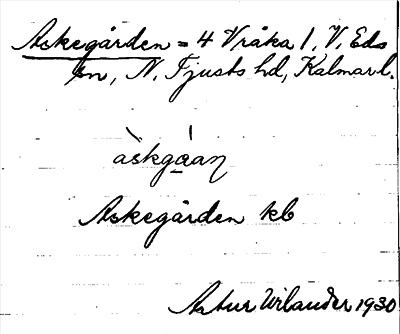 Askegården = 4 Vråka 1, V. Eds
sn, N. Tjusts hd, Kalmar l.
àskgáan
Askegården kb
Artur Wilander 1930